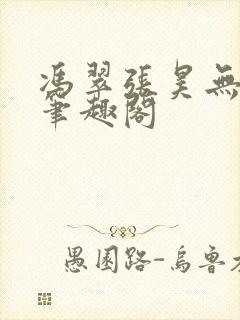 馮翠張昊無
筆趣閣
愚園路-烏魯木